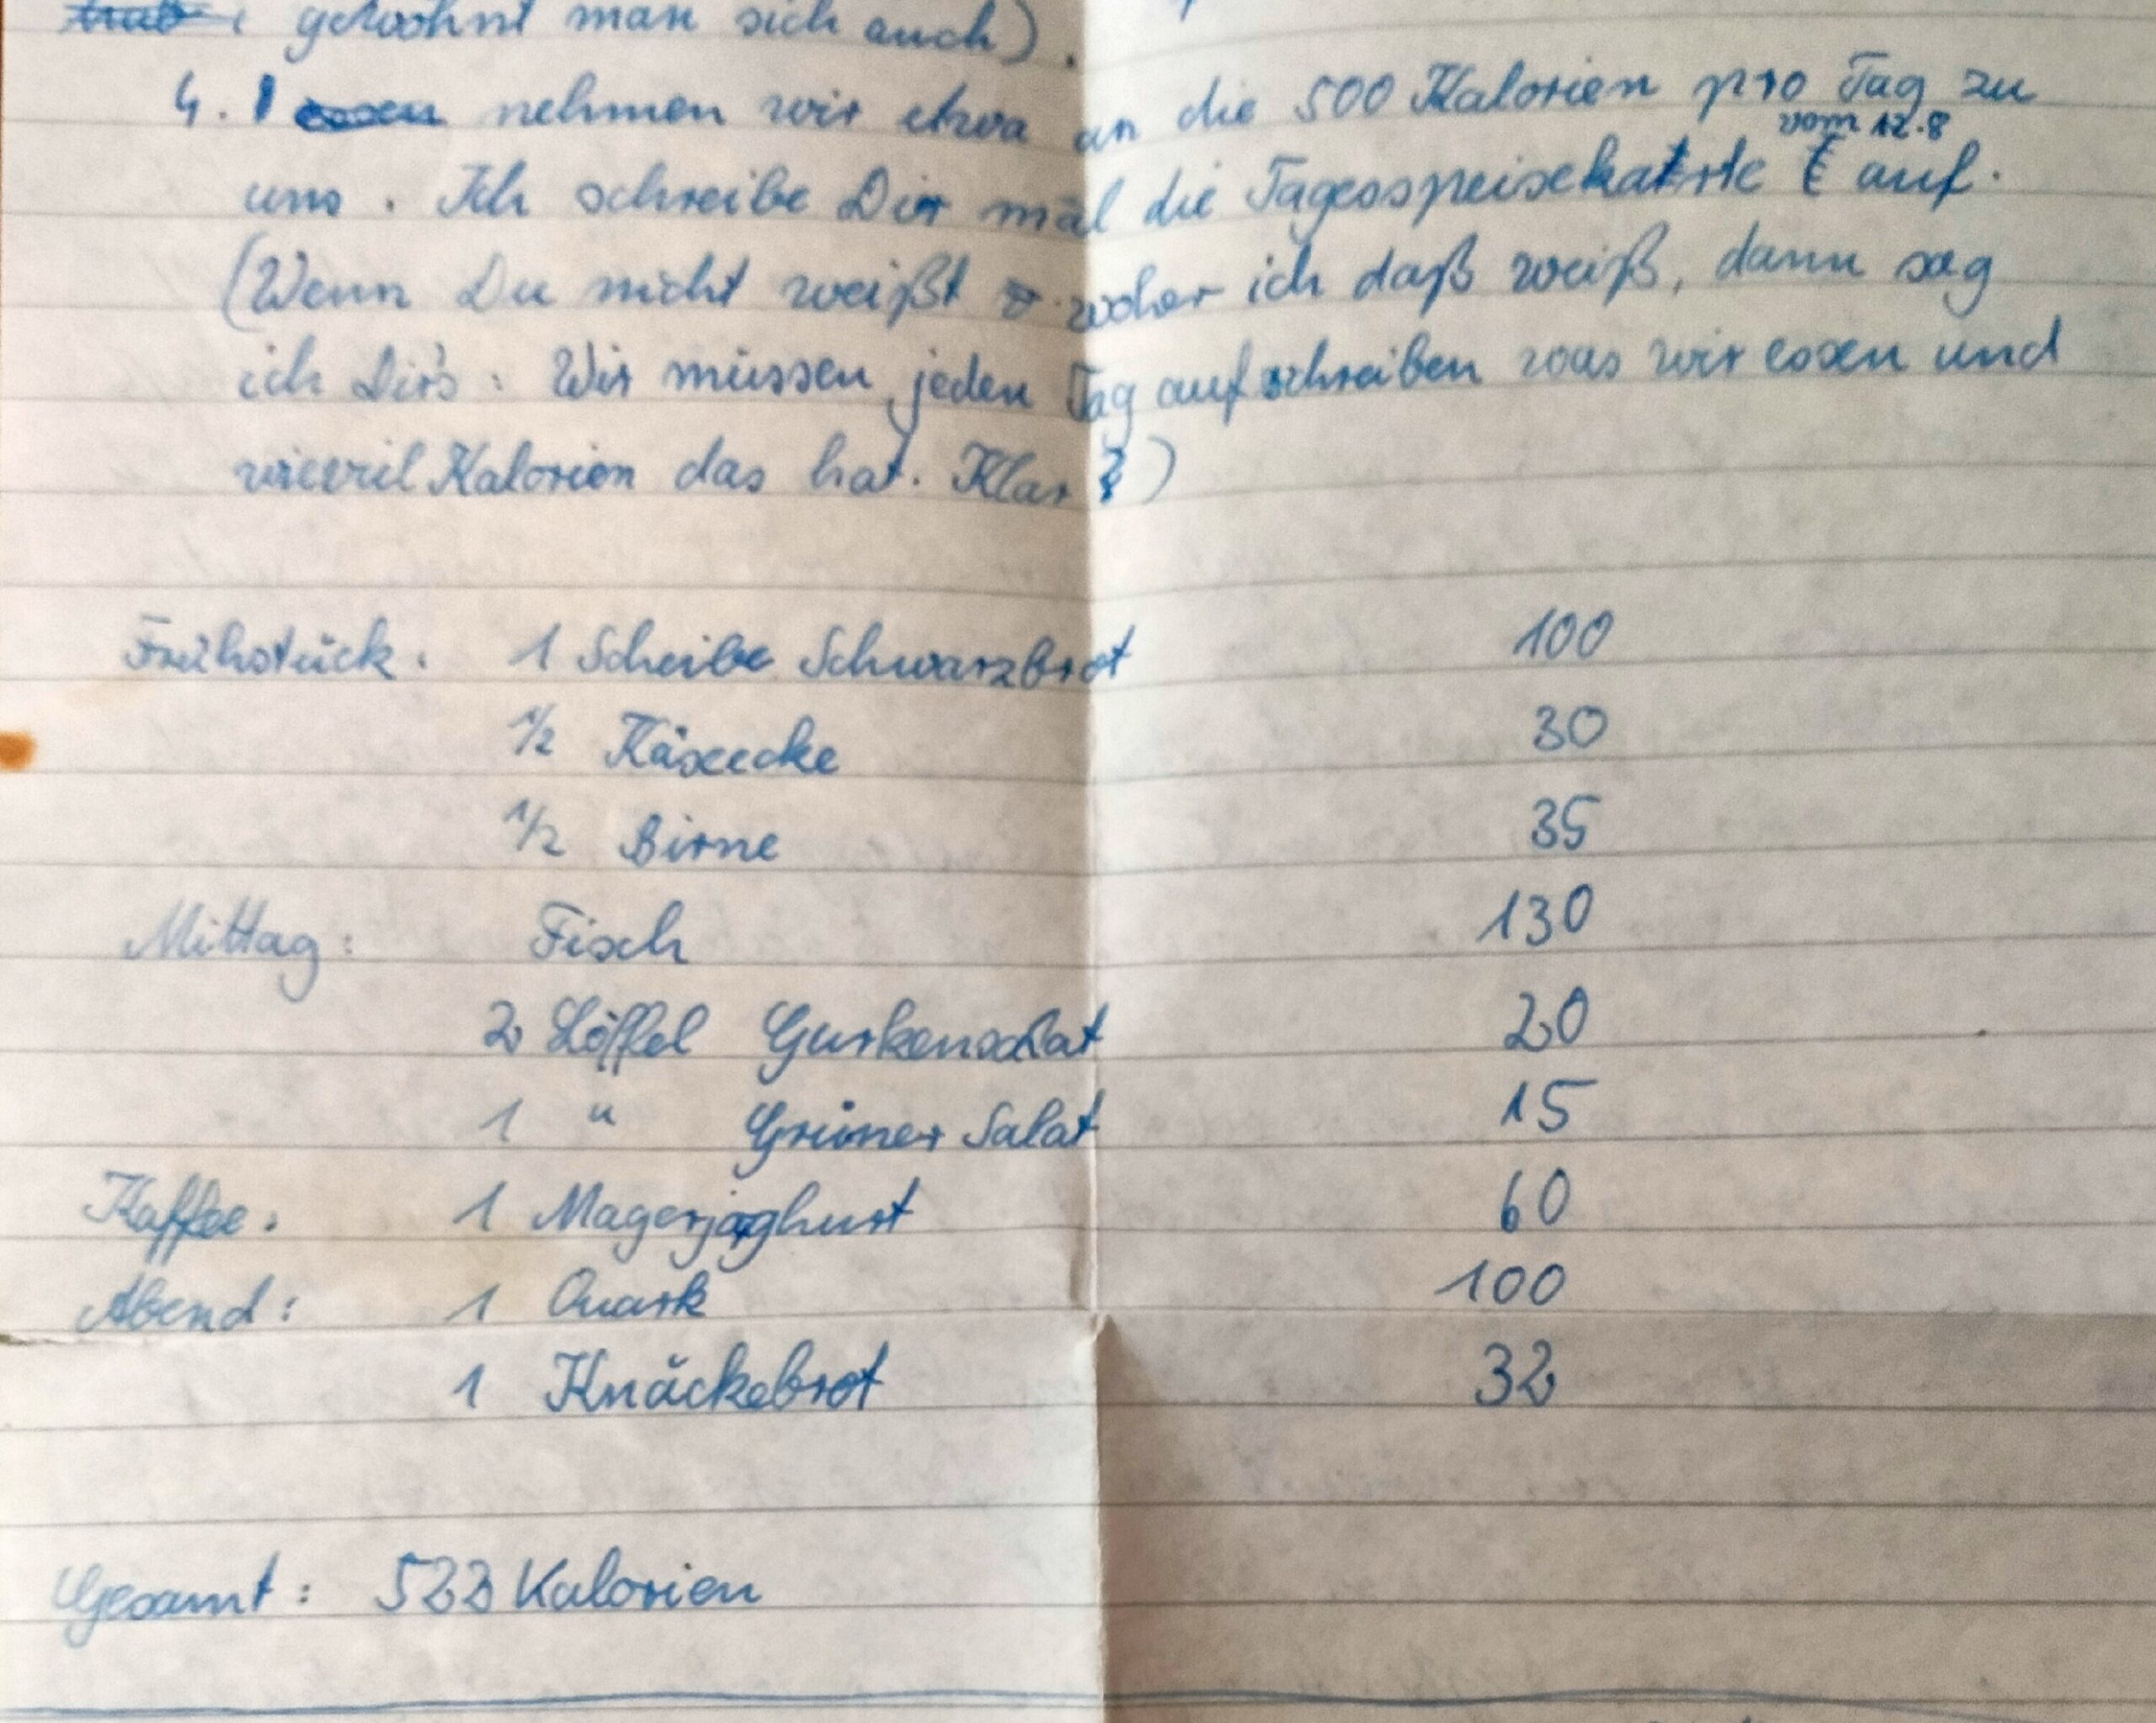 gewöhnt man sich auch).
4. nehmen wir etwa an die 500 Kalorien pro Tag zu
vom 12.8
uns. Ich schreibe Dir mal die Tagesspeisekarte auf.
(Wenn Du nicht weißt woher ich daß weiß, dann sag
ich Dir's: Wir müssen jeden Tag aufschreiben was wir essen und
wieviel Kalorien das hat. Klar?)
Frühstück: 1 Scheibe Schwarzbrot 100
1/2 Käseecke 30
1/2 Birne 35
Mittag: Fisch 130
2 Löffel Gurkensalat 20
1 " Grüner Salat 15
Kaffee: 1 Magerjoghurt 60
Abend: 1 Quark 100
1 Knäckebrot 32
Gesamt: 522 Kalorien